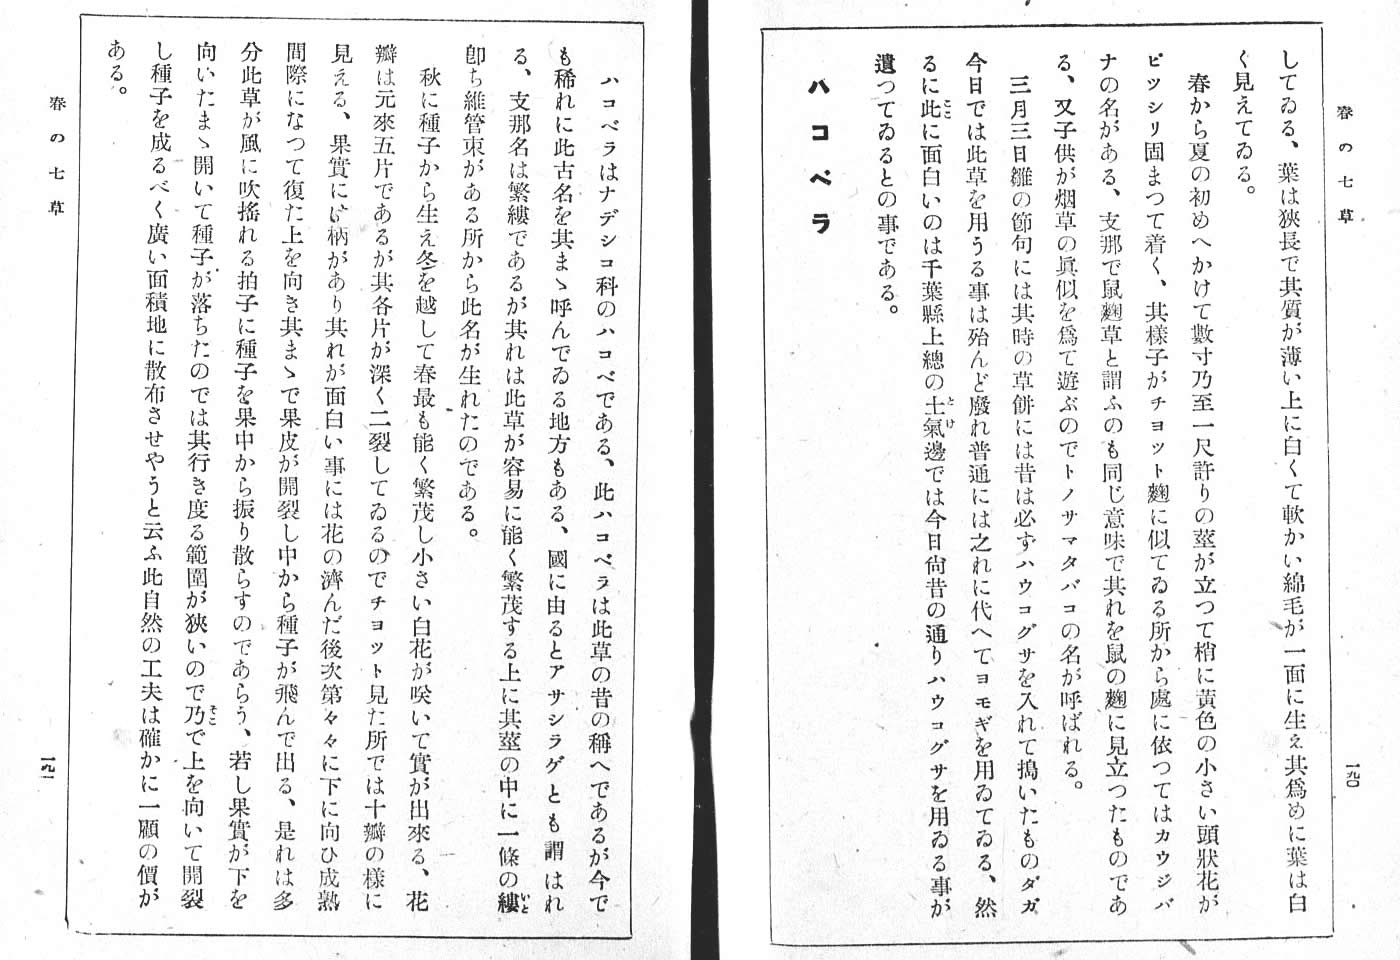 春の七草
一九〇
してゐる、葉は狹長で其質が薄い上に白くて軟かい綿毛が一面に生え其爲めに葉は白
く見えてゐる。
春から夏の初めへかけて數寸乃至一尺許りの莖が立つて梢に黃色の小さい頭狀花が
ピツシリ固まつて着く、其樣子がチヨツト麴に似てゐる所から處に依つてはカウジバ
ナの名がある、支那で鼠麴草と謂ふのも同じ意味で其れを鼠の麴に見立つたものであ
る、又子供が烟草の眞似を爲て遊ぶのでトノサマタバコの名が呼ばれる。
三月三日雛の節句には其時の草餅には昔は必ずハウコグサを入れて搗いたものダガ
今日では此草を用うる事は殆んど廢れ普通には之れに代へてヨモギを用ゐてゐる、然
るに此に面白いのは千葉縣上總の土氣邊では今日尙昔の通りハウコグサを用ゐる事が
遺つてゐるとの事である。
ハコベラ
ハコベラはナデシコ科のハコベである、此ハコベラは此草の昔の稱へであるが今で
も稀れに此古名を其まゝ呼んでゐる地方もある、國に由るとアサシラゲとも謂はれ
る、支那名は繁縷であるが其れは此草が容易に能く繁茂する上に其莖の中に一條の縷
卽ち維管束がある所から此名が生れたのである。
秋に種子から生え冬を越して春最も能く繁茂し小さい白花が咲いて實が出來る、花
瓣は元來五片であるが其各片が深く二裂してゐるのでチヨツト見た所では十瓣の樣に
見える、果實には柄があり其れが面白い事には花の濟んだ後次第々々に下に向ひ成熟
間際になつて復た上を向き其まゝで果皮が開裂し中から種子が飛んで出る、是れは多
分此草が風に吹搖れる拍子に種子を果中から振り散らすのであらう、若し果實が下を
向いたまゝ開いて種子が落ちたのでは其行き度る範圍が狹いので乃で上を向いて開裂
し種子を成るべく廣い面積地に散布させやうと云ふ此自然の工夫は確かに一顧の價が
ある。
春の七草
一九一